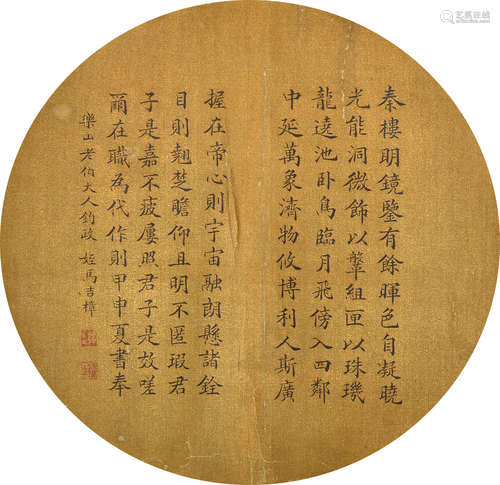 秦樓明鏡鑒有餘暉色自凝曉
光能洞微飾以鞶組匣以珠璣
龍遶池卧鳥臨月飛傍入四鄰
中延萬象濟物攸博利人斯廣
握在帝心則宇宙融朗懸諸銓
目則翹楚瞻仰且明不匿瑕君
子是嘉不疲屢照君子是效嗟
爾在職為代作則甲申夏書奉
樂山老伯大人鈞政 姪馬吉樟